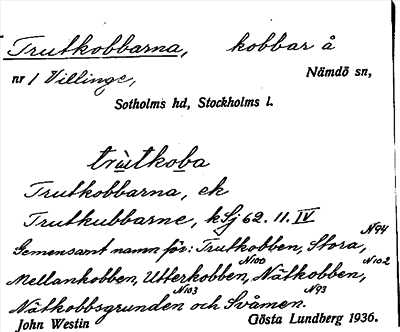 Trutkobbarna, kobbar å
nr 1 Villinge, Nämdö sn,
Sotholms hd, Stockholms l.
trùtkoba
Trutkobbarna, ek
Trutkubbarne, kSj 62. 11. IV
Gemensamt namn för: Trutkobben, Stora, N94
Mellankobben, N100 Utterkobben, Nätkobben, N102
Nätkobbsgrunden N103 och Svåmen. N93
John Westin Gösta Lundberg 1936.